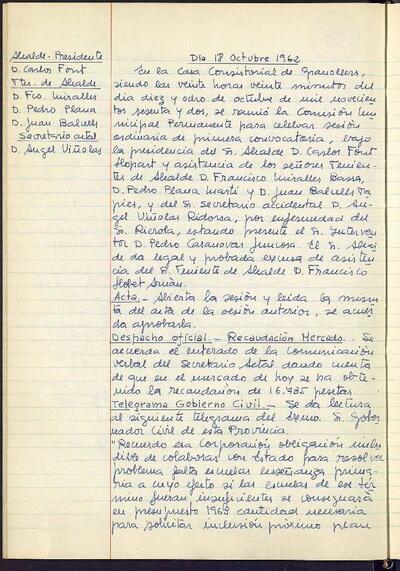 Alcalde-Presidente
D. Carlos Font
Ttes. de Alcalde
D. Fco. Miralles
D. Pedro Plana
D. Juan Balvells
Secretario actal
D. Angel Viñolas
Día 18 Octubre 1962
En la Casa Consistorial de Granollers,
siendo las veinte horas veinte minutos del
día diez y ocho de octubre de mil novecien
tos sesenta y dos, se reunió la Comisión Mu
nicipal Permanente para celebrar sesión
ordinaria de primera convocatoria, bajo
la presidencia del Sr. Alcalde D. Carlos Font
Llopart y asistencia de los señores Tenien-
tes de Alcalde D. Francisco Miralles Bassa,
D. Pedro Plana Martí y D. Juan Balvells Ta
pies, y del Sr. Secretario accidental D. An-
gel Viñolas Ridorsa, por enfermedad del
Sr. Rierola, estando presente el Sr. Interven
tor D. Pedro Casanovas Juncosa. El Sr. Alcal
de da legal y probada excusa de asisten
cia del Sr. Teniente de Alcalde D. Francisco
Llobet
Acta.- Abierta la sesión y leída la minu
ta del acta de la sesión anterior, se acuer
da aprobarla.
Despacho oficial.- Recaudación Mercado.- Se
acuerda el enterado de la comunicación
verbal del Secretario Actal dando cuenta
de que en el mercado de hoy se ha obte-
nido la recaudación de 16.735 pesetas
Telegrama Gobierno Civil.- Se da lectura
al siguiente telegrama del Exmo. Sr. Gober
nador Civil de esta Provincia.
"Recuerdo esa Corporación obligación inelu
dible de colaborar con Estado para resolver
problema falta escuelas enseñanza prima-
ria a cuyo efecto si las escuelas de ese tér
mino fueran insuficientes se consignará
en presupuesto 1963 cantidad necesaria
para solicitar inclusión próximo plan